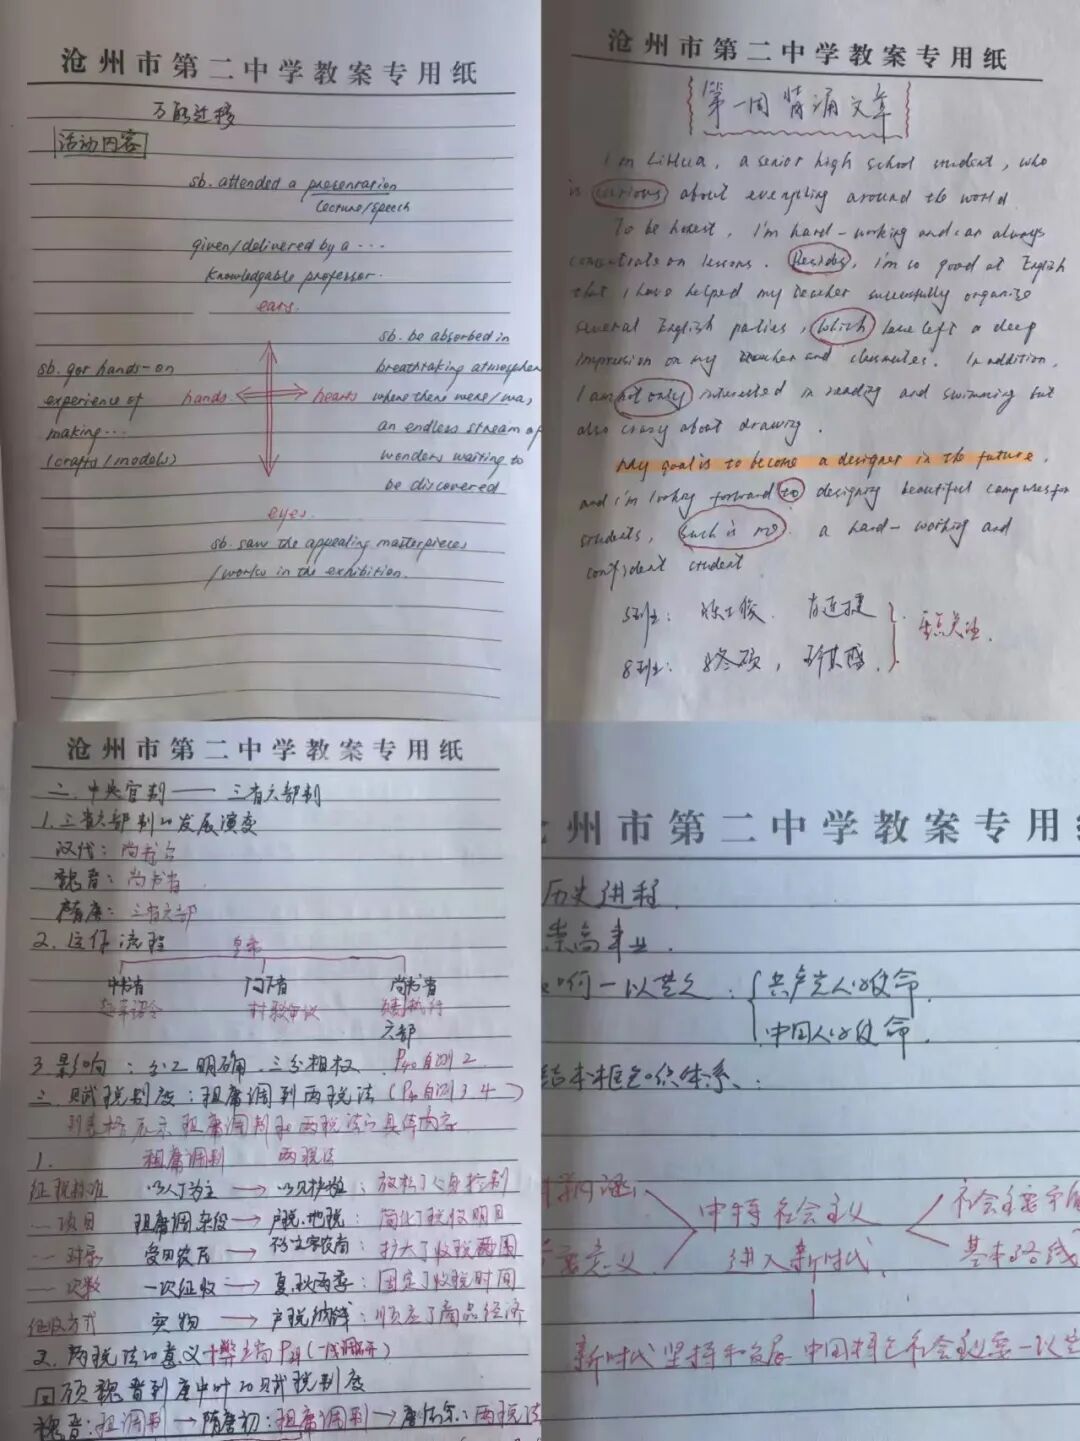 沧州市第二中学教案专用纸
万能迁移
活动内容
sb. attended a presentation
lecture/speech
given/delivered by a ...
knowledgable professor.
ears.
sb. got hands-on
experience of
making...
(crafts/models)
hands
hearts
sb. be absorbed in
breathtaking atmospher
where there were/was
an endless stream of
wonders waiting to
be discovered
eyes.
sb. saw the appealing masterpieces
/works in the exhibition.
沧州市第二中学教案专用纸
第一周背诵文章
I'm LiHua, a senior high school student, who
is curious about everything around the world
To be honest, I'm hard-working and can always
concentrate on lessons. Besides, I'm so good at English
that I have helped my teacher successfully organize
several English parties, which have left a deep
impression on my teacher and classmates. In addition,
I am not only interested in reading and swimming but
also crazy about drawing.
My goal is to become a designer in the future,
and I'm looking forward to designing beautiful campuses for
students, such is me. a hard-working and
confident student
5班:
8班:
重点关注.
沧州市第二中学教案专用纸
二.中央官制——三省六部制
1.三省六部制的发展演变
汉代:尚书台
魏晋:尚书省
隋唐:三省六部
2.运作流程 皇帝
中书省 门下省 尚书省
起草诏令 封驳审议 执行
六部
3.影响:分工明确.三分相权. P40自测2
三.赋税制度:租庸调到两税法(P41自测3.4)
列表格展示租庸调制和两税法的具体内容
1. 租庸调制 两税法
征税标准 以人丁为主→以财产为主:放松了人身控制
—项目 租庸调.杂役→户税.地税:简化了税收明目
—对象 受田农民→ 扩大了收税范围
—次数 一次征收→夏.秋两季:固定了收税时间
征收方式 实物→户税纳钱:顺应了商品经济
2.两税法的意义+弊端
回顾魏晋到唐中叶的赋税制度
魏晋:租调制→隋唐初:租庸调制→唐后期:两税法
州市第二中学教案专用
历史进程.
崇高事业.
如何一以贯之:
共产党人的使命.
中国人的使命.
结本框知识体系:
中特社会主义
进入新时代.
社会主要矛盾
基本路线
新时代坚持和发展中国特色社会主义要一以贯